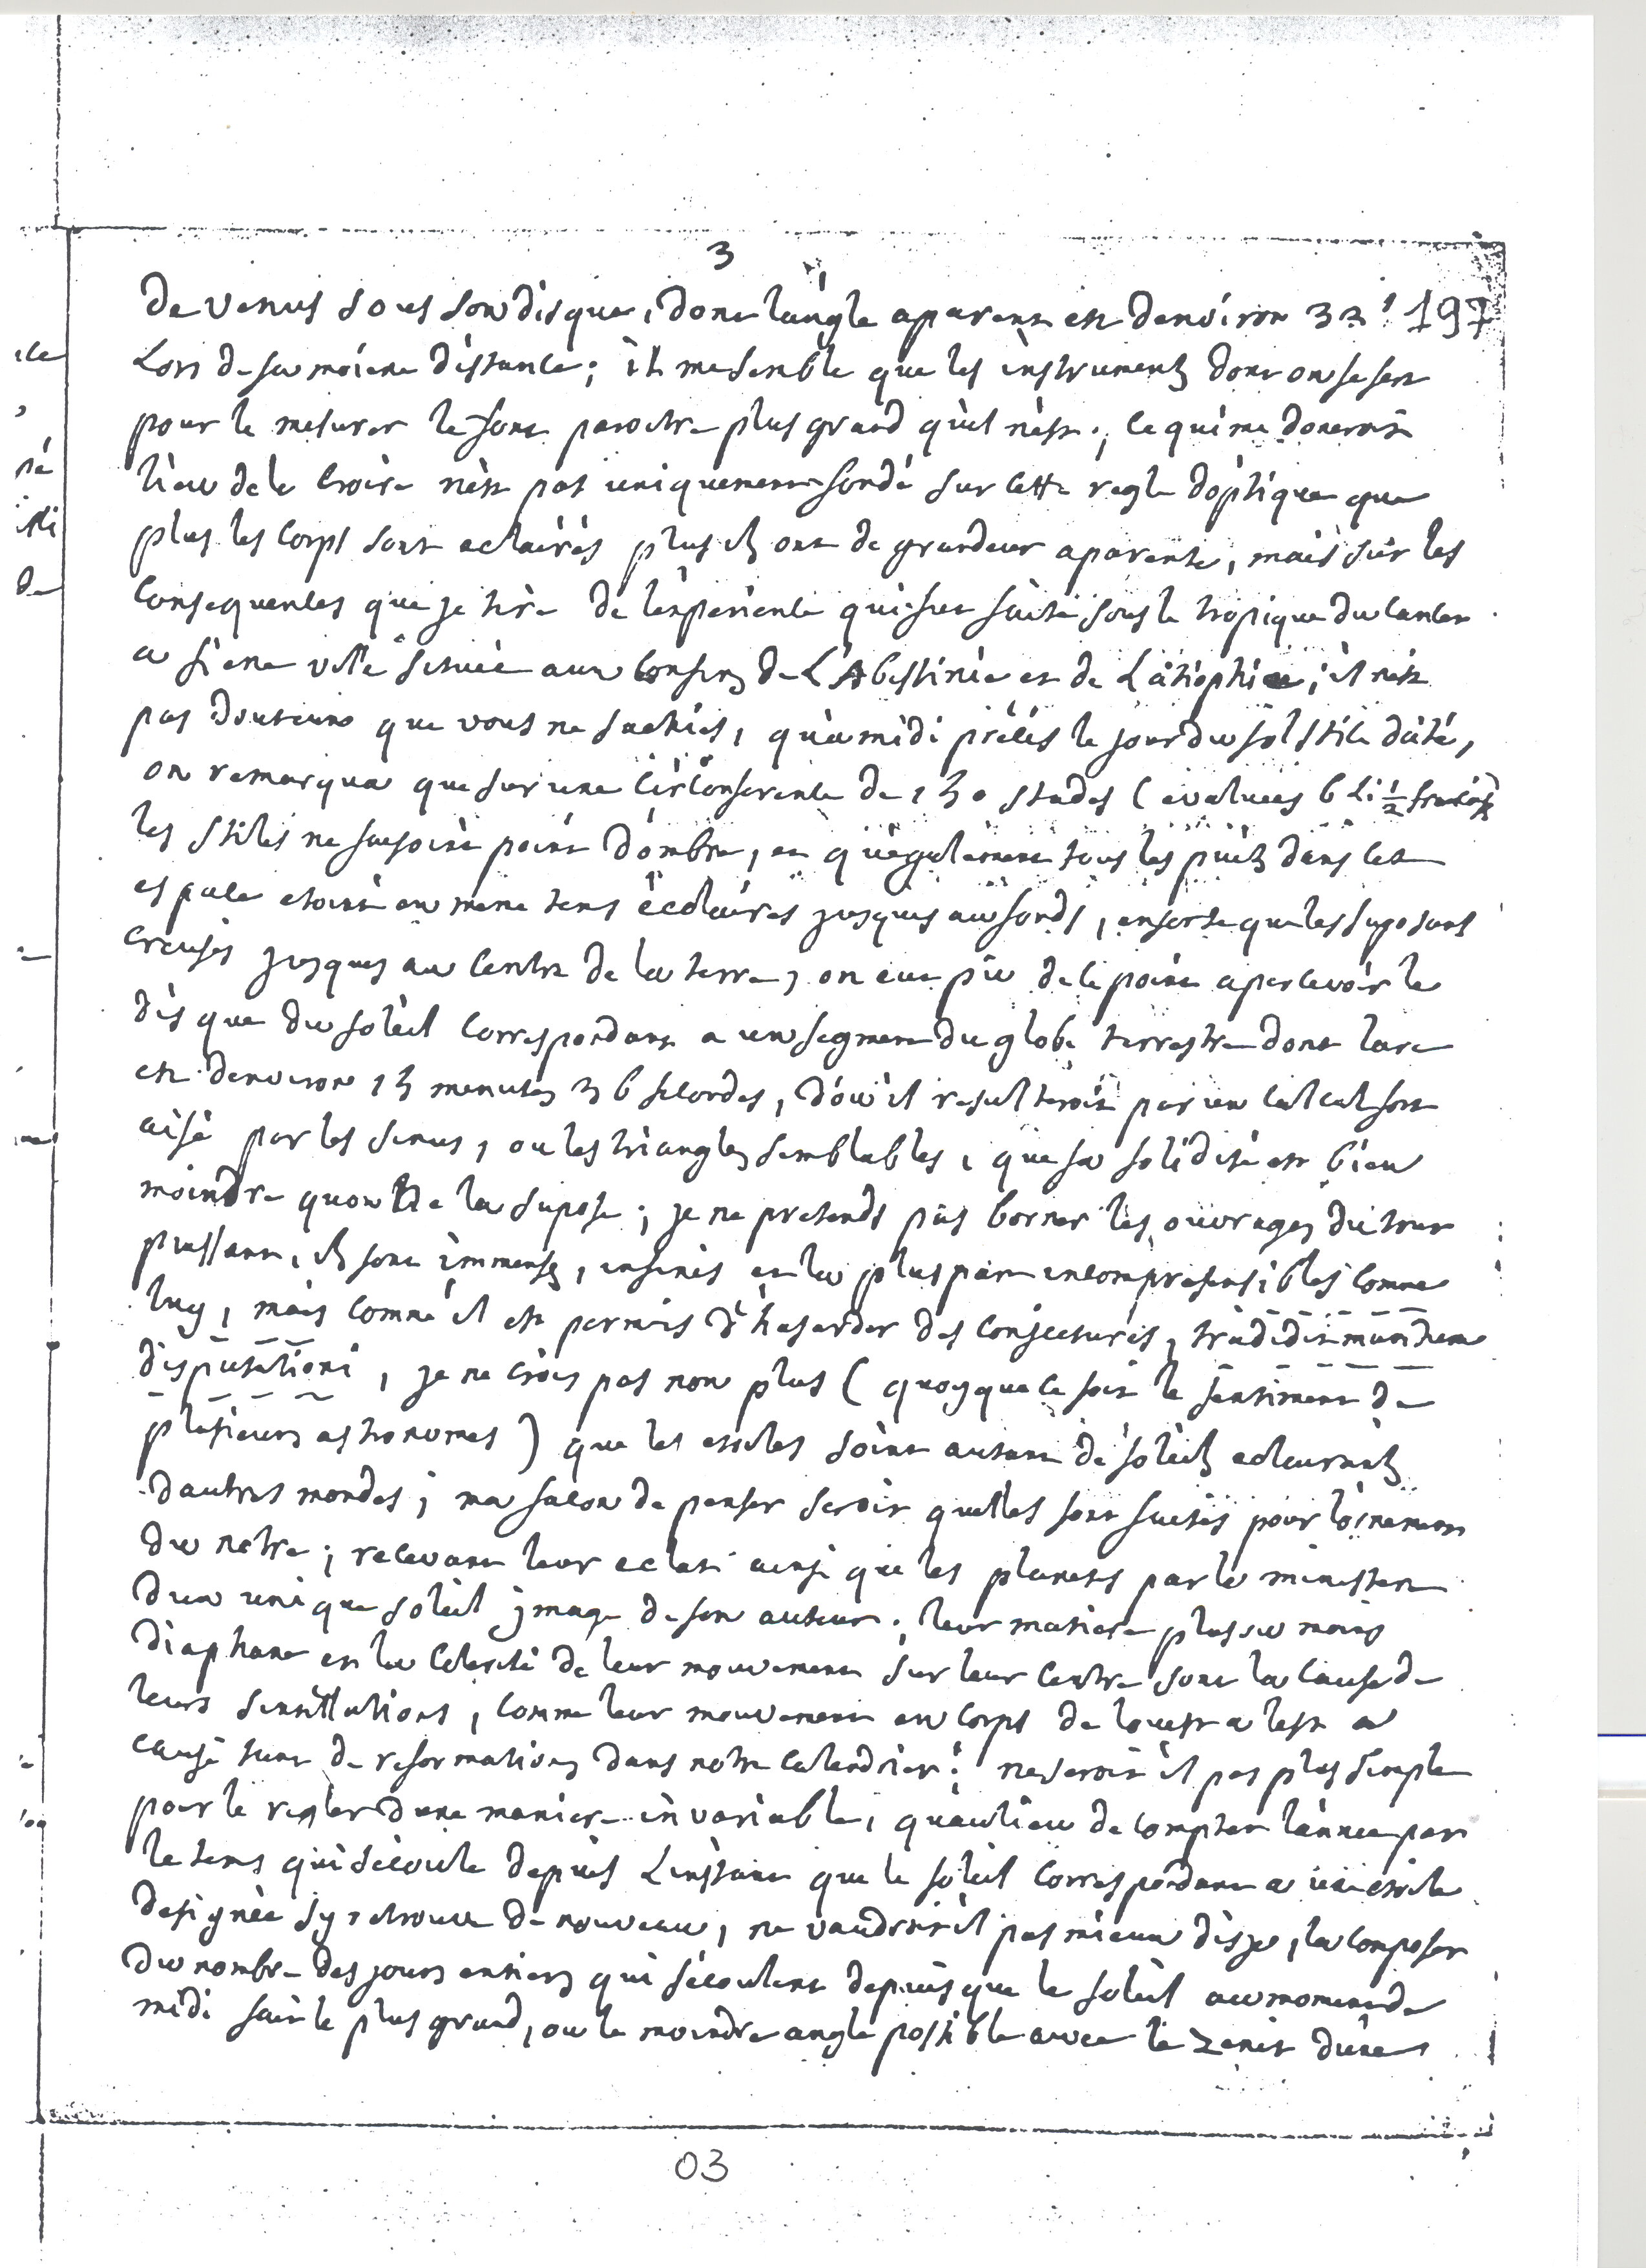 3
197
De venus sous son disque, dont langle aparent est denviron 32'
Lors de sa moiene distance; il me semble que les instruments dont on se sert
pour le mesurer le font paroitre plus grand quil n'est; ce qui me doneroit
lieu de le croire n'est pas uniquement fondé sur cette regle doptique que
plus les corps sont eclairés plus ils ont de grandeur aparente, mais sur les
consequences que je tire de lexperience qui fut faite sous le tropique du cancer
a siene ville située aux confins de L'Abissinie et de Lætiophie; il n'est
pas douteux que vous ne sachiés, qu'a midi précis le jour du solstice d'été,
on remarqua que sur une circonference de 130 stades (evaluées 6 Li 1/2 francois)
les stiles ne faisoint point d'ombre, et qu'egalement tous les puits dans cet
espace etoint en meme tems ecclairés jusques au fonds, en sorte que les suposant
creusés jusques au centre de la terre, on eut pu de ce point apercevoir le
disque du soleil correspondant a un segment du globe terrestre dont larc
est denviron 15 minutes 36 secondes, d'ou il resulteroit par un calcul fort
aisé par les sinus, ou les triangles semblables, que sa solidité est bien
moindre quon ne la supose; je ne pretends pas borner les ouvrages du tout
puissant, ils sont immenses, infinis et la pluspart incomprehensibles comme
luy, mais comme il est permis d'hasarder des conjectures, tradidit mundum
disputationi, je ne crois pas non plus (quoyque ce soit le sentiment de
plusieurs astronomes) que les etoiles soint autant de soleils eclairants
dautres mondes; ma facon de penser seroit quelles sont faites pour lornement
du notre; recevant leur eclat ainsi que les planetes par le ministere
dun unique soleil jmage de son auteur; leur matiere plus ou moins
diaphane et la celerité de leur mouvement sur leur centre sont la cause de
leurs sentillations, comme leur mouvement en corps de louest a lest a
causé tant de reformations dans notre calendrier; ne seroit il pas plus simple
pour le regler dune maniere invariable, quau lieu de compter lannée par
le tems qui sécoule depuis Linstant que le soleil correspondant a une etoile
designée sy retrouve de nouveau, ne vaudroit il pas mieux disje, la composer
du nombre des jours entiers qui sécoulent depuis que le soleil au moment de
midi fait le plus grand, ou le moindre angle possible avec le zenit dune
03